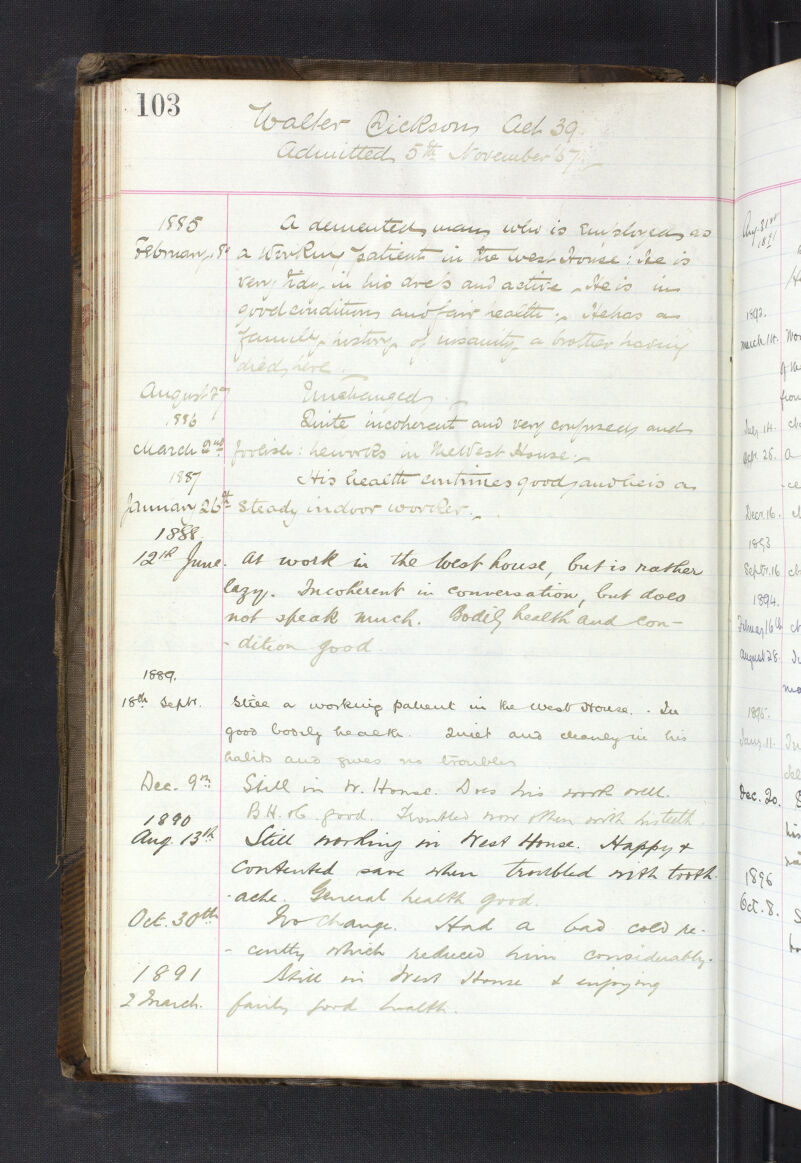 103
Walter Dickson Aet 39.
Admitted 5th November '67.
1885 A demented man who is employed as
February 18 a working patient in the West House: He is
very tidy in his dress and active. He is in
good condition and fair health. He has a
family history of insanity, a brother having
died here.
August 27 Unchanged.
1886 Quite incoherent and very confused and
March 2nd foolish: he works in the West House.
1887 His health continues good, and he is a
January 26th steady indoor worker.
1888.
12th June. At work in the West house, but is rather
lazy. Incoherent in conversation, but does
not speak much. Bodily health and con-
-dition good.
1889.
18th Septr. Still a working patient in the West House. In
good bodily health. Quiet and cleanly in his
habits and gives no trouble
Dec. 9th Still in W. House. Does his work well.
B.H. & C. good. Troubled now & then with his teeth.
1890
Aug. 13th Still working in West House. Happy &
contented save when troubled with tooth-
-ache. General health good.
Oct. 30th No change. Had a bad cold re-
-cently which reduced him considerably.
1891 Still in West House & enjoying
2 March. fairly good health.
Aug. 31st
1891
1892.
March 14.
Sept. 26. a
Decr. 16.
1893
Septr. 16
1894.
February 16th
August 28.
1895.
Jany. 11.
Dec. 20.
1896
Oct. 8.